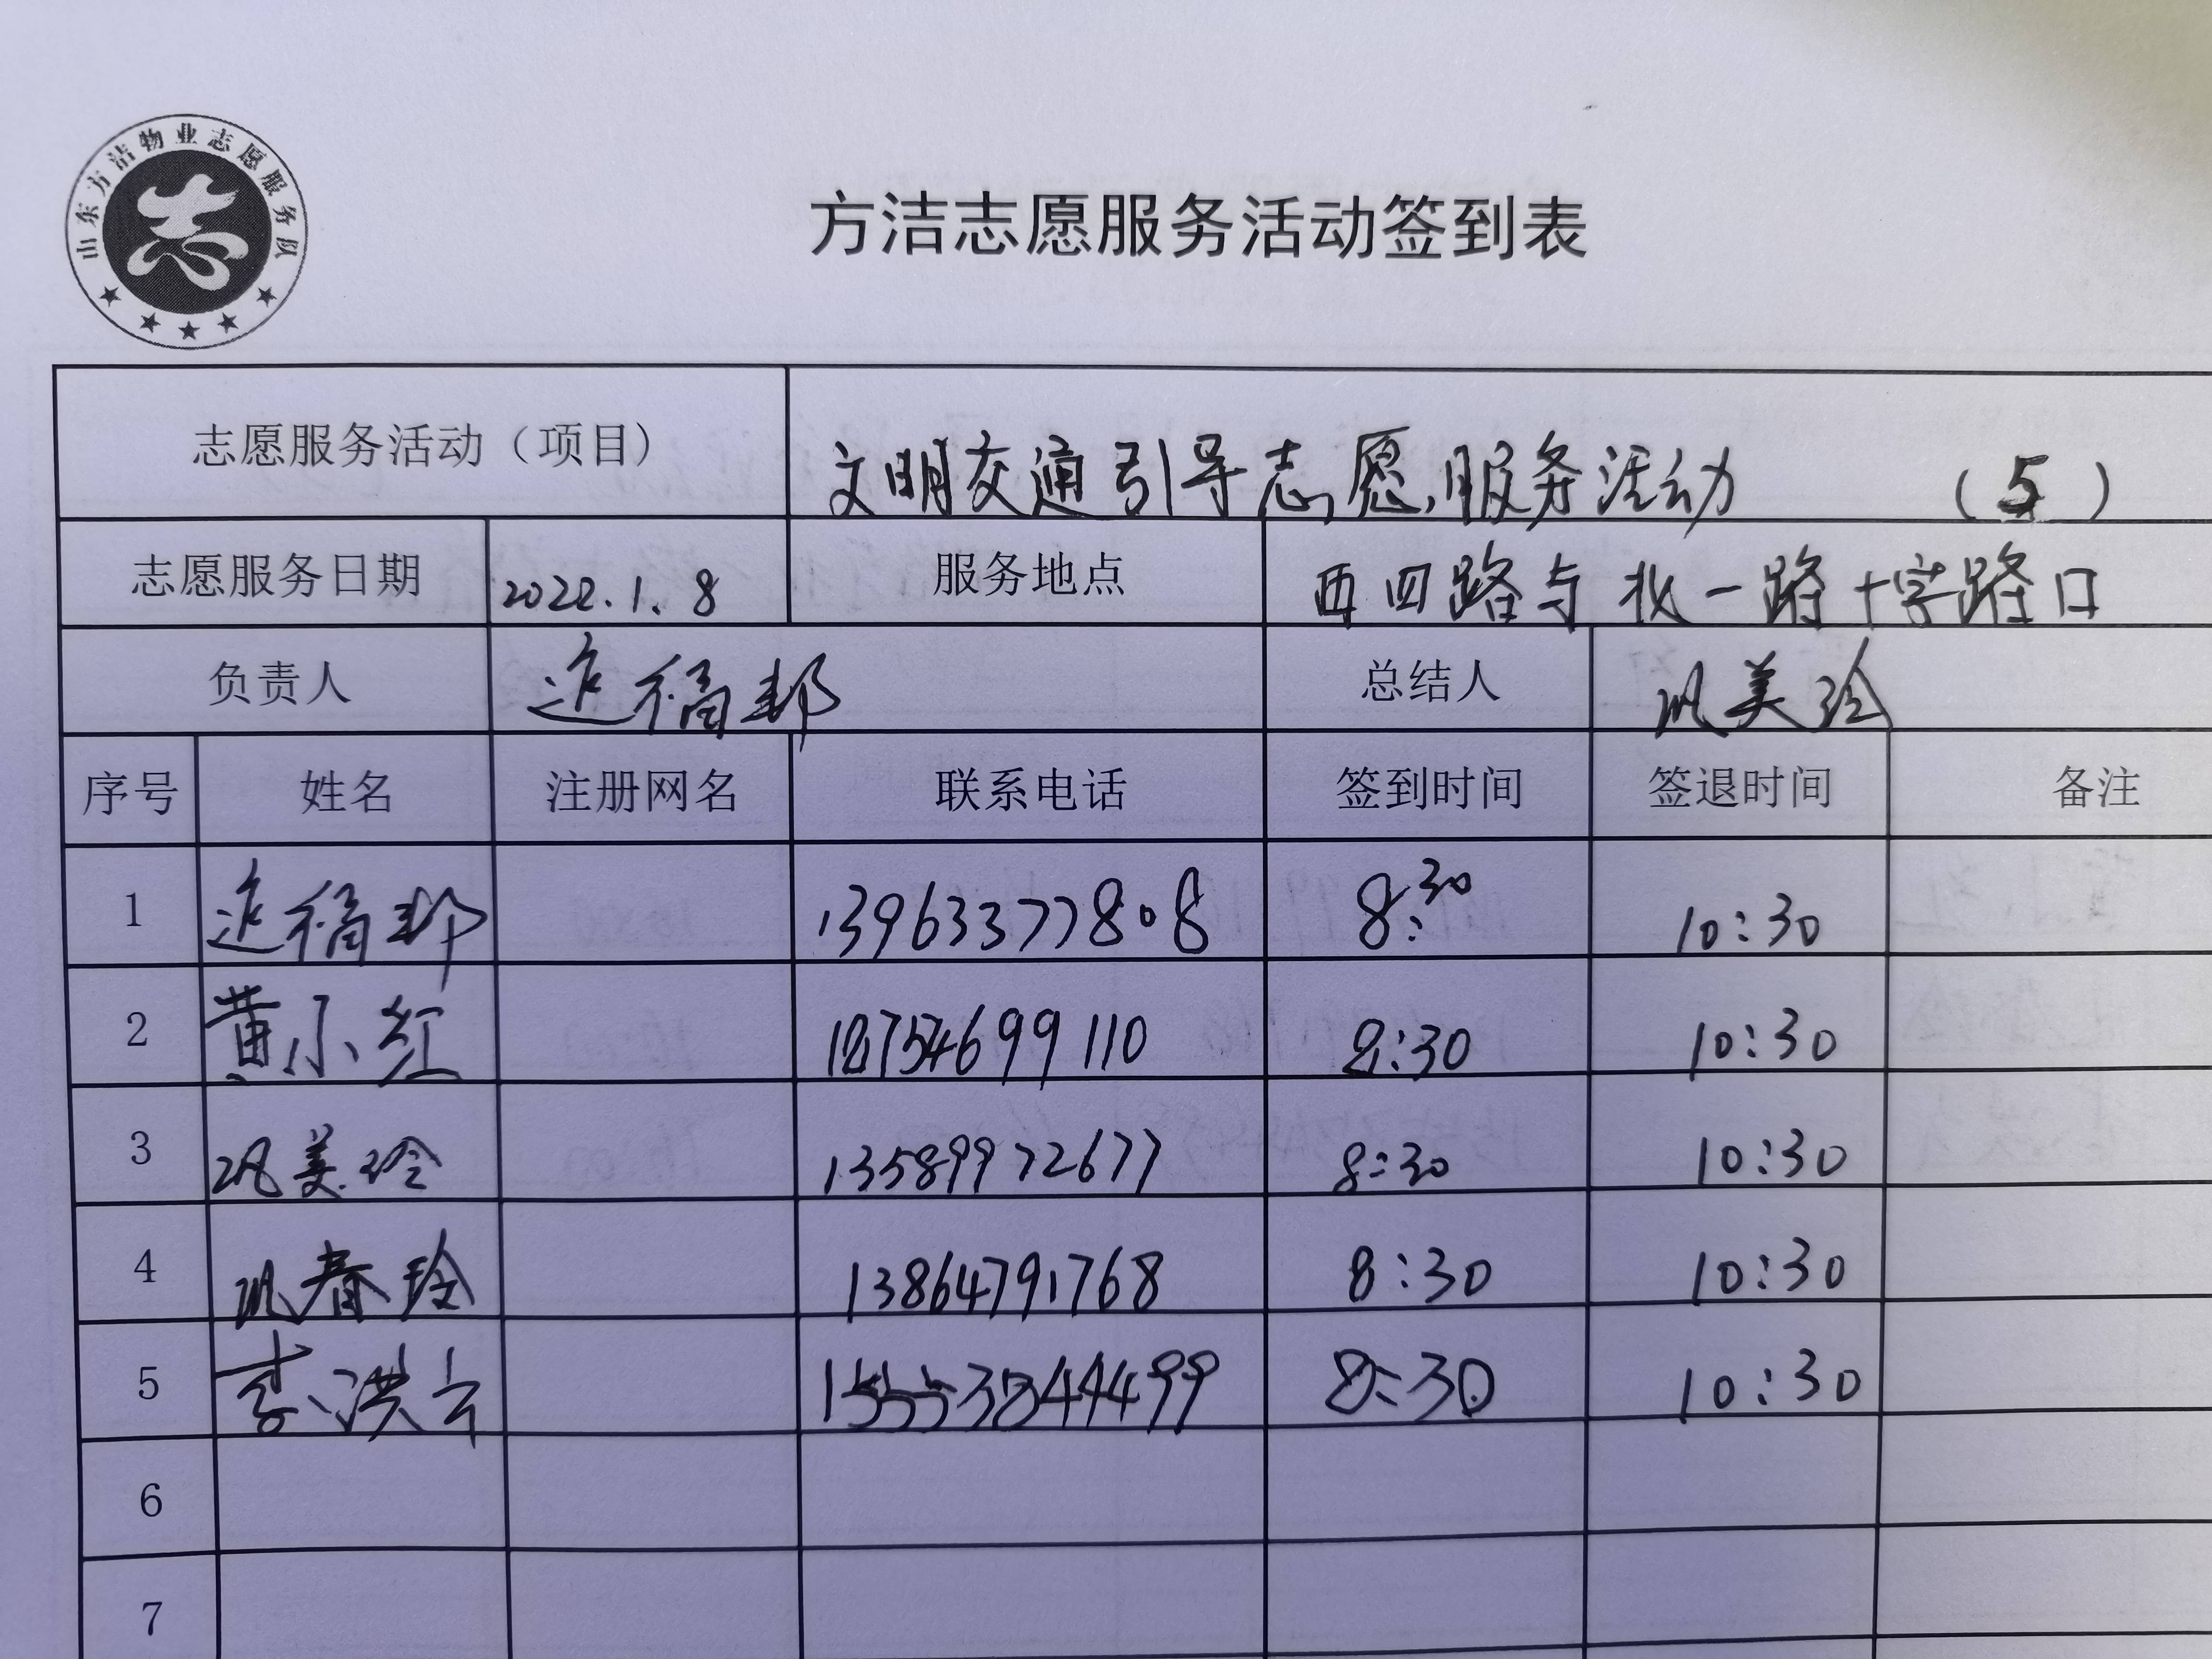 山东方洁物业志愿服务队
方洁志愿服务活动签到表
志愿服务活动（项目） 文明交通引导志愿服务活动 （5）
志愿服务日期 2022.1.8 服务地点 西四路与北一路十字路口
负责人 总结人 巩美玲
序号 姓名 注册网名 联系电话 签到时间 签退时间 备注
1 13963377808 8:30 10:30
2 黄小红 18754699110 8:30 10:30
3 巩美玲 13589972677 8:30 10:30
4 巩春玲 13864791768 8:30 10:30
5 李洪云 8:30 10:30
6
7